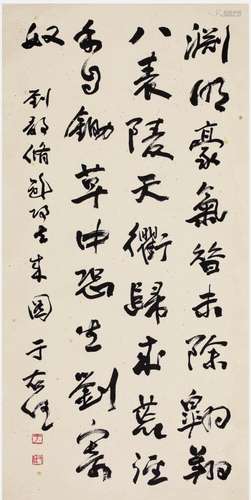 淵明豪氣昔未除翱翔
八表陵天衢歸來荒徑
手自鋤草中恐生劉寄
奴
劉靜脩歸去来圖 于右任